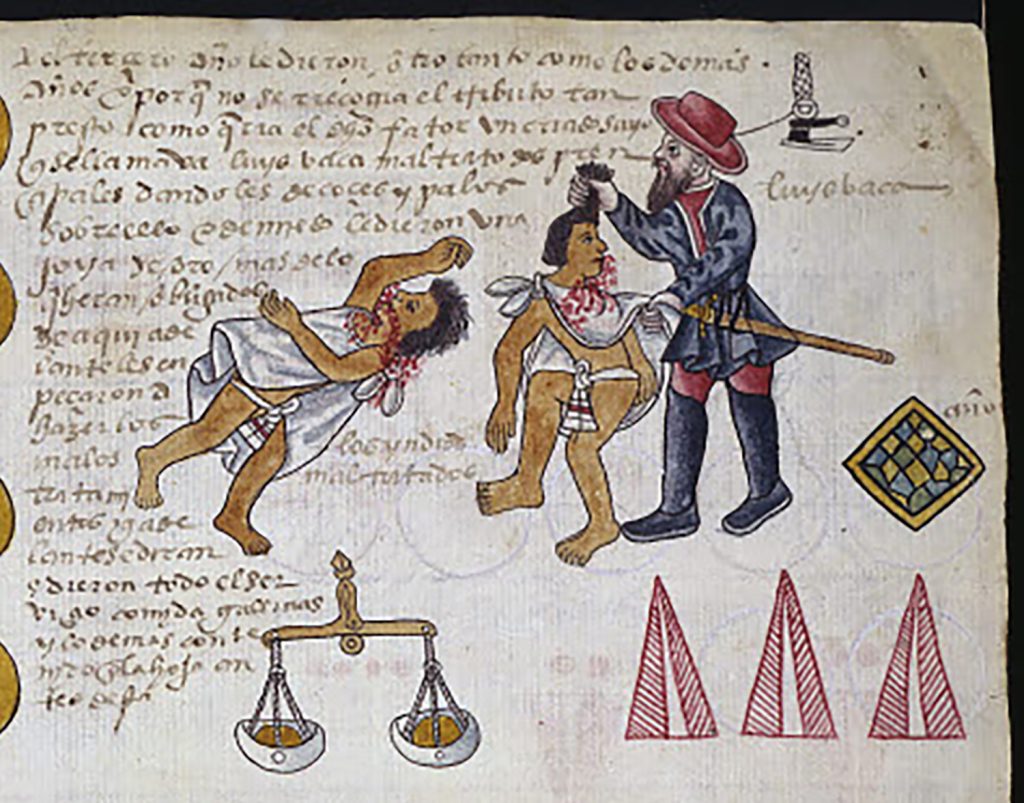 el tercero año le dieron otro tanto como los demas
años y porq̃ no se recogia el tributo tan
presto como q̃ria el dho fator un criado suyo
q se llamava luys vaca maltrato los prin
çipales dandoles de coçes y palos
sobre ello le dieron una
joya de oro mas de lo
q heran obligados
de aqui ade
lante les en
peçaron a
hazer los
malos
tratam
entos y ade
lante
y dieron todo el ser
viçio comida gallinas
y lo demas conte
nido la hoja an
tes desta
luys vaca
los yndios
maltratados
año